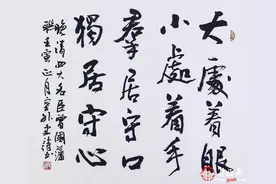 大處着眼
小處着手
羣居守口
獨居守心
晚清四大名臣曾國藩